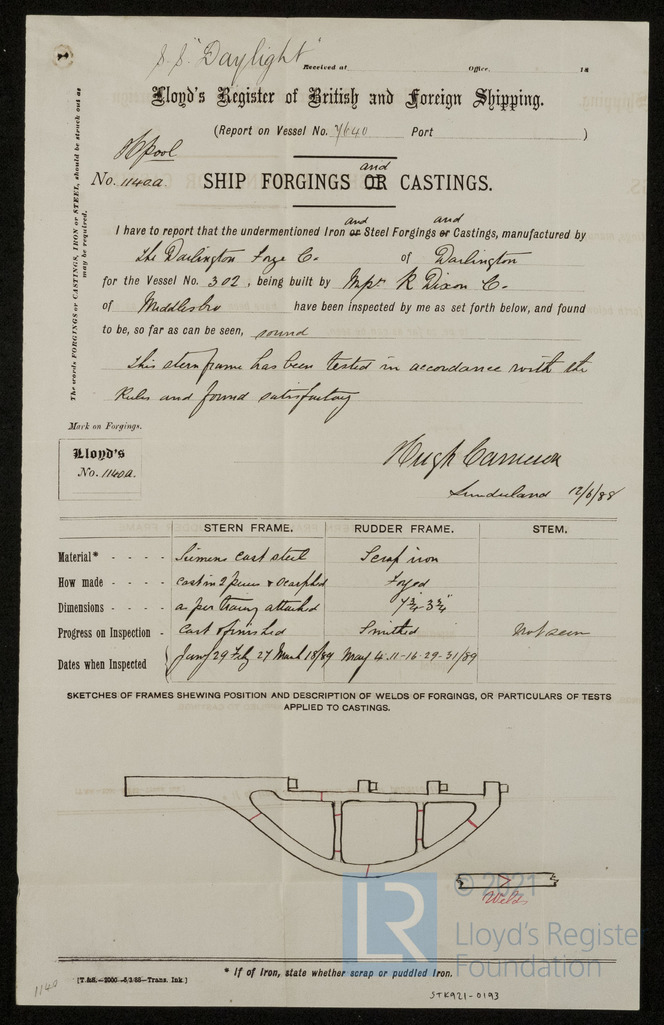 S.S. "Daylight"
Received at Office, 18
Lloyd's Register of British and Foreign Shipping.
(Report on Vessel No. 7640 Port )
H'pool
No. 1140a. SHIP FORGINGS OR and CASTINGS.
The words FORGINGS or CASTINGS, IRON or STEEL, should be struck out as may be required.
I have to report that the undermentioned Iron or and Steel Forgings or and Castings, manufactured by
the Darlington Forge Co. of Darlington
for the Vessel No. 302, being built by R Dixon Co.
of Middlesbro have been inspected by me as set forth below, and found
to be, so far as can be seen, sound
This stern frame has been tested in accordance with the
Rules and found satisfactory
Mark on Forgings.
Lloyd's
No. 1140a.
Hugh Cameron
Sunderland 12/6/88
STERN FRAME. RUDDER FRAME. STEM.
Material* - - - - Siemens cast steel Scrap iron
How made - - - - cast in 2 pieces & scarphed Forged
Dimensions - - - as per tracing attached 7¾ 3¾"
Progress on Inspection - Cast & finished Smithed Not seen
Dates when Inspected Jany 29 Feby 27 March 18/89 May 4. 11-16-29-31/89
SKETCHES OF FRAMES SHEWING POSITION AND DESCRIPTION OF WELDS OF FORGINGS, OR PARTICULARS OF TESTS
APPLIED TO CASTINGS.
Welds
© 2021
LR
Lloyd's Register
Foundation
* If of Iron, state whether scrap or puddled Iron.
[T.&S.—2000—5/3/88—Trans. Ink.]
1140
STK921-0193